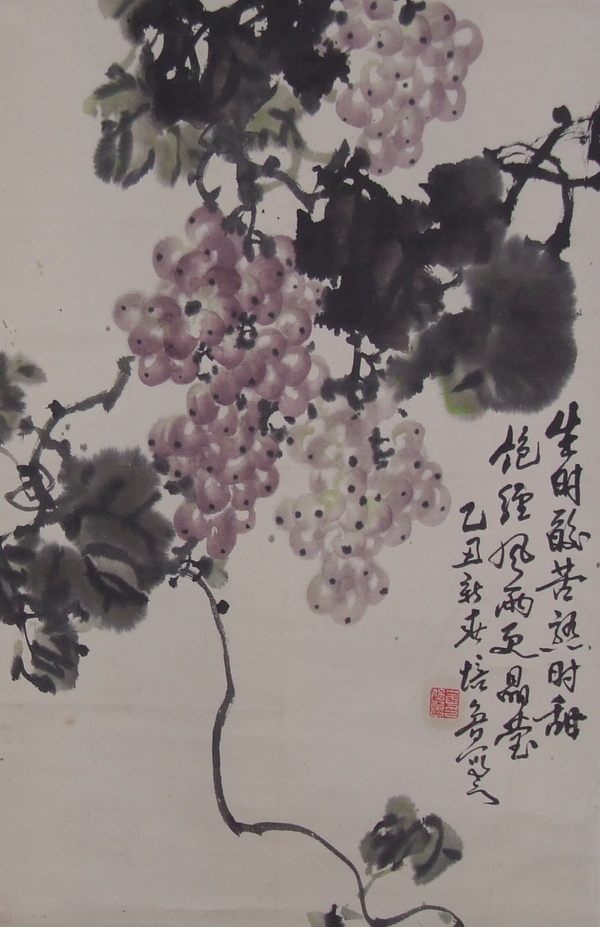 生时酸苦熟时甜
饱经风雨更晶莹
乙丑新春培鲁写意